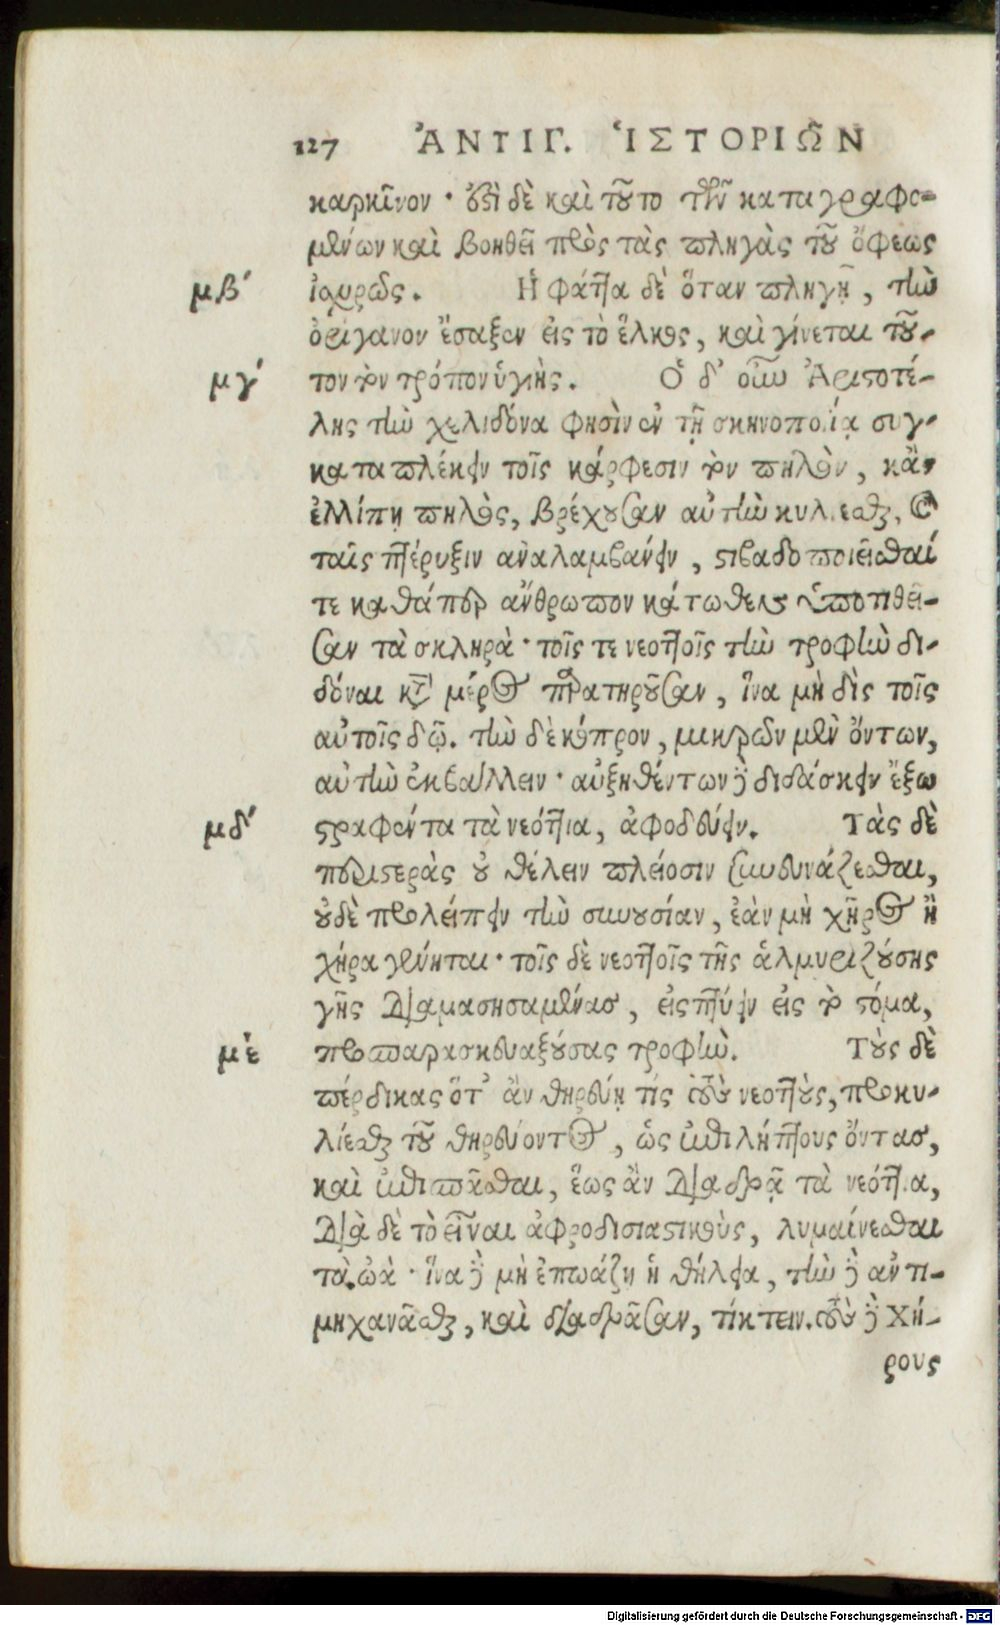 127 ἈΝΤΙΓ. ἹΣΤΟΡΙΩ͂Ν
καρκῖνον · ἐστὶ δὲ καὶ τοῦτο τῶν καταγραφο-
μένων καὶ βοηθεῖ πρὸς τὰς πληγὰς τοῦ ὄφεως
μβ´ ἰσχυρῶς. Ἡ φάτ͂ια δὲ ὅταν πληγῇ, τὴν
ὀρίγανον ἔσαξεν εἰς τὸ ἕλκος, καὶ γίνεται τοῦ-
μγ´ τον τὸν τρόπον ὑγιὴς. Ὁ δ' οὖν Ἀριστοτέ-
λης τὴν χελιδόνα φησὶν ἐν τῇ σκηνοποιίᾳ συγ-
καταπλέκειν τοῖς κάρφεσιν τὸν πηλὸν, κἂν
ἐλλίπῃ πηλὸς, βρέχουσαν αὑτὴν κυλίεσθαι, καὶ
ταῖς πτέρυξιν ἀναλαμβάνειν, στιβαδοποιεῖσθαί
τε καθάπερ ἄνθρωπον κάτωθεν ὑποτιθεῖ-
σαν τὰ σκληρὰ · τοῖς τε νεοττοῖς τὴν τροφὴν δι-
δόναι κατὰ μέρος παρατηροῦσαν, ἵνα μὴ δὶς τοῖς
αὐτοῖς δῷ. τὴν δὲ κόπρον, μικρῶν μὲν ὄντων,
αὐτὴν ἐκβάλλειν · αὐξηθέντων δὲ διδάσκειν ἔξω
μδ´ στραφέντα τὰ νεόττια, ἀφοδεύειν. Τὰς δὲ
περιστερὰς οὐ θέλειν πλείοσιν συνδυνάζεσθαι,
οὐδὲ προλείπειν τὴν συνουσίαν, ἐὰν μὴ χῆρος ἢ
χήρα γένηται · τοῖς δὲ νεοττοῖς τῆς ἁλμυριζούσης
γῆς διαμασησαμένας, εἰσπτύειν εἰς τὸ στόμα,
με´ προπαρασκευαξούσας τροφήν. Τοὺς δὲ
πέρδικας ὅτ' ἂν θηρεύῃ τίς τοὺς νεοττοὺς, προκυ-
λίεσθαι τοῦ θηρεύοντος, ὡς ἐπιλήπτους ὄντας,
καὶ ἐπισπᾶσθαι, ἕως ἂν διαδρᾷ τὰ νεόττια,
διὰ δὲ τὸ εἶναι ἀφροδισιαστικοὺς, λυμαίνεσθαι
τὰ ὠὰ · ἵνα δὲ μὴ ἐπωάζῃ ἡ θήλεια, τὴν δὲ ἀντι-
μηχανᾶσθαι, καὶ διαδρᾶσαν, τίκτειν. τοὺς δὲ χή-
ρους
Digitalisierung gefördert durch die Deutsche Forschungsgemeinschaft - DFG